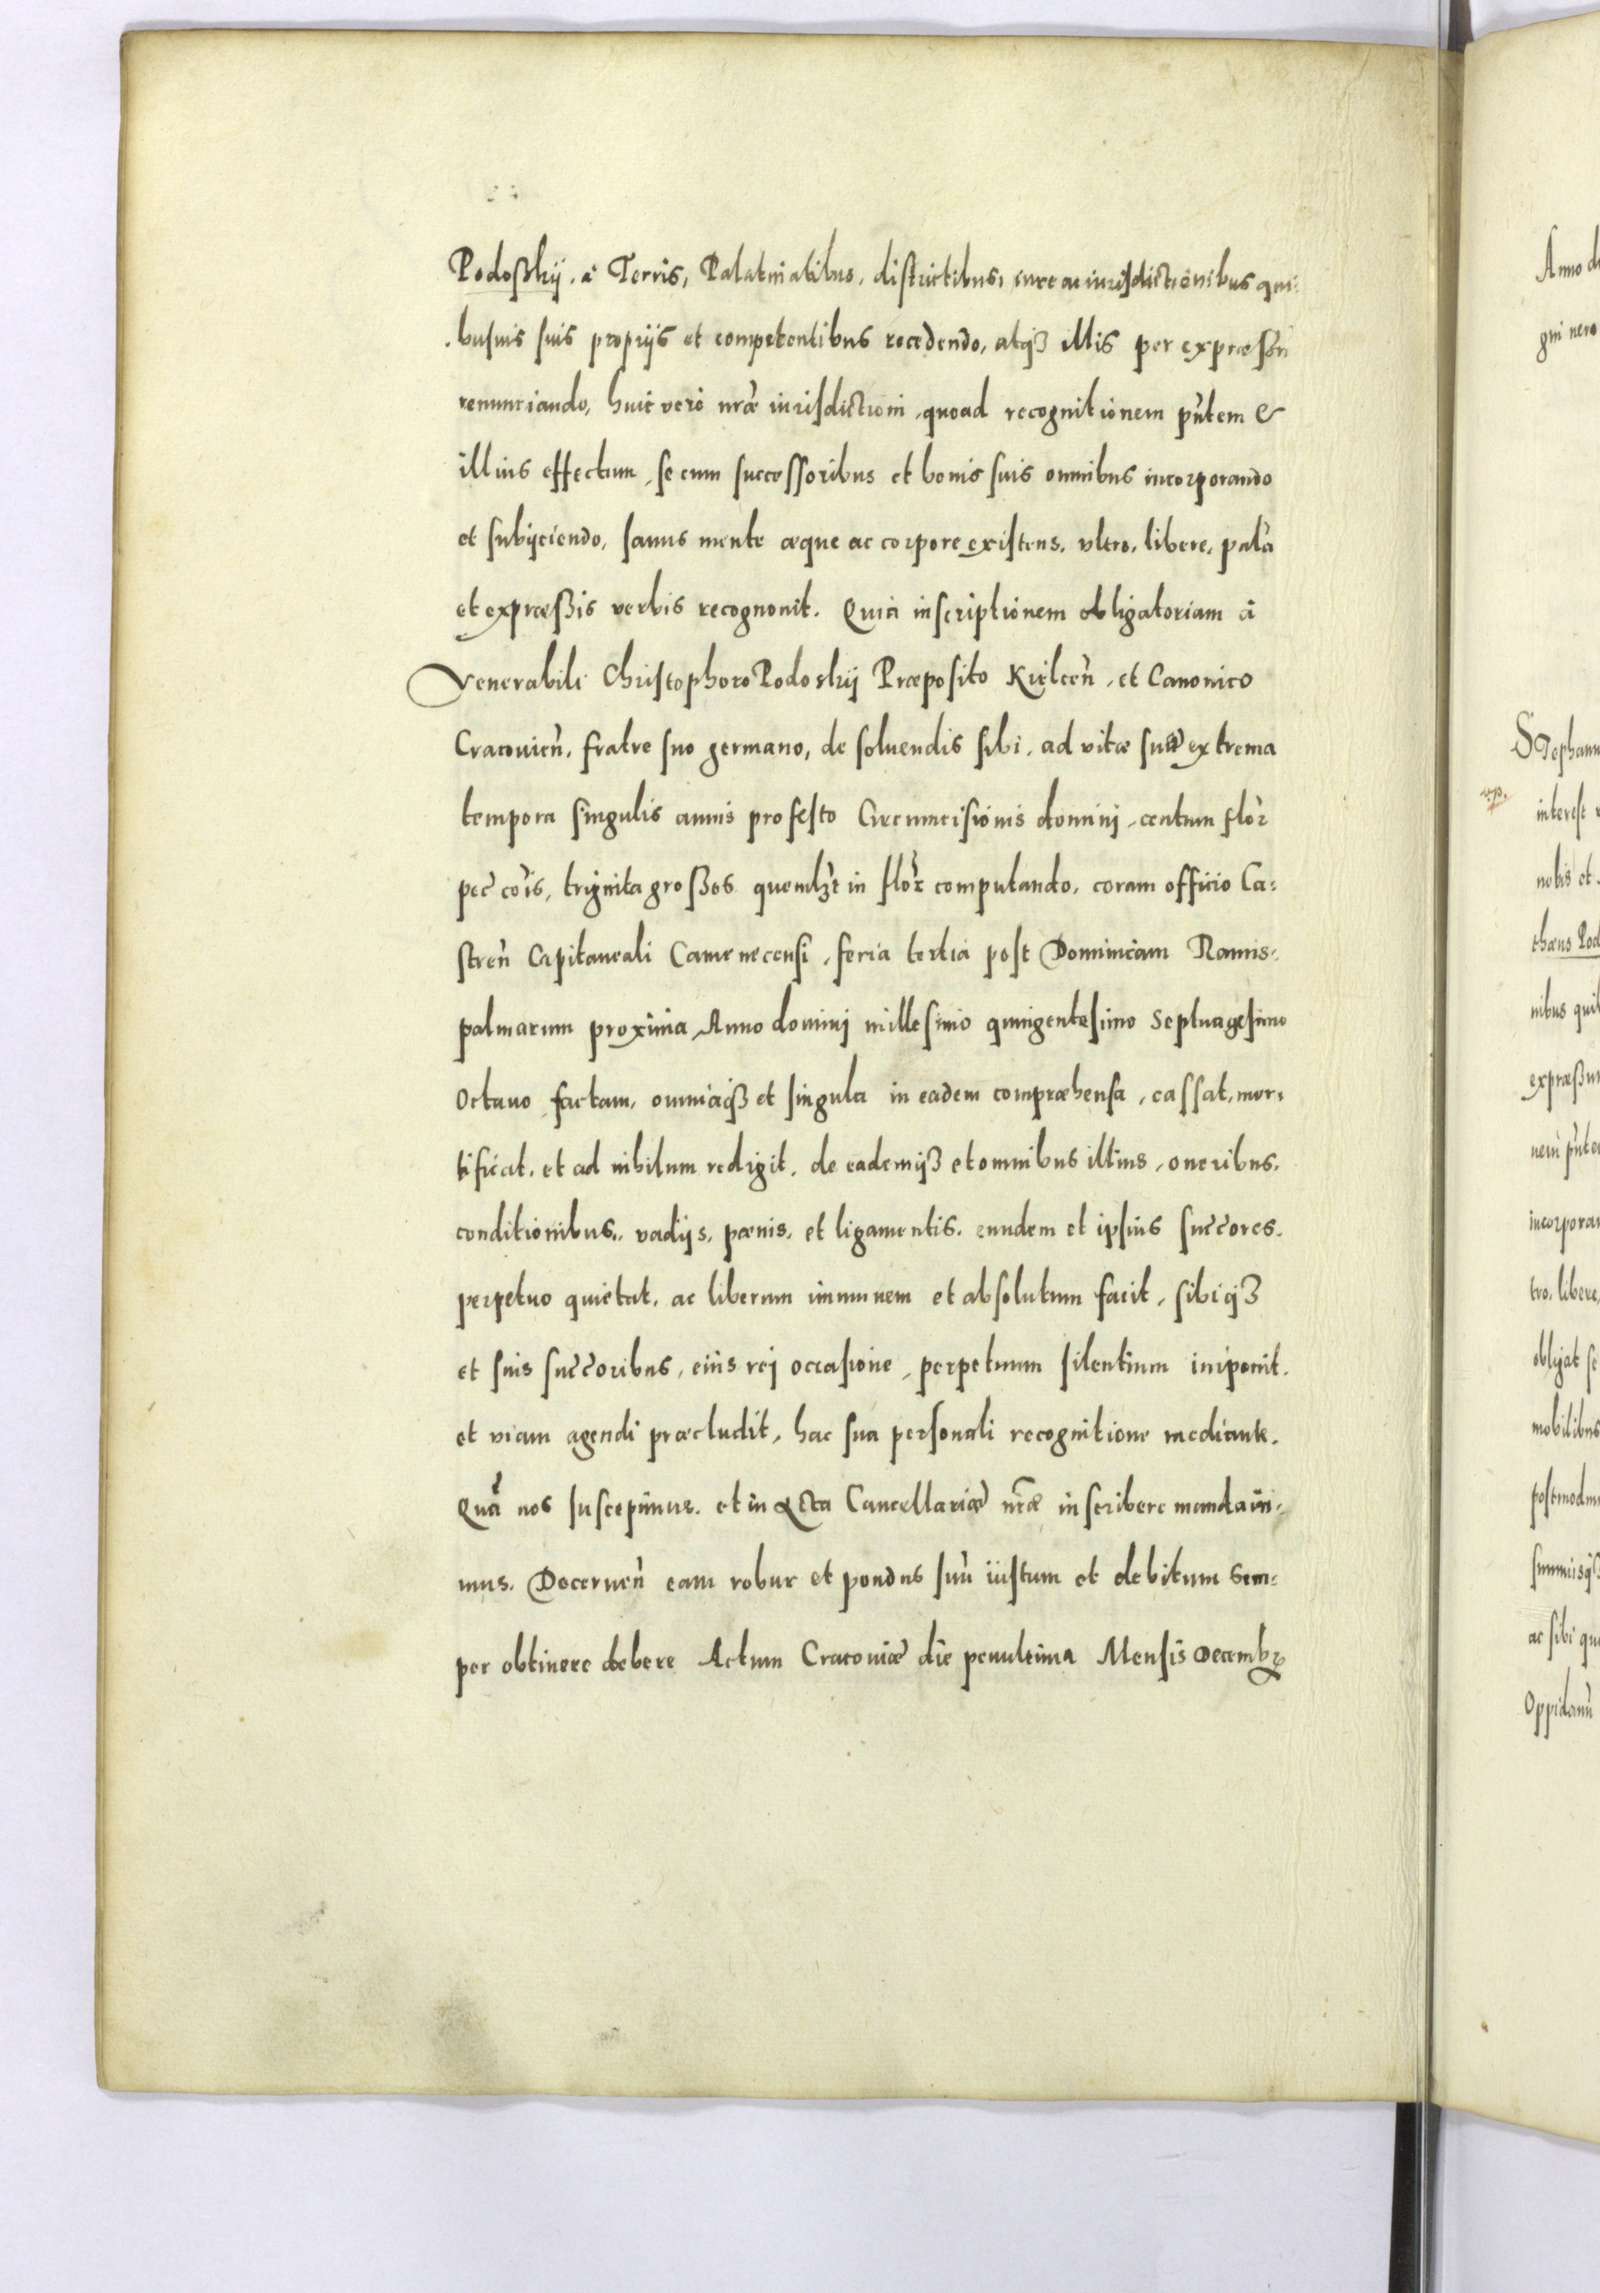 Podoßkij. à Terris, Palatinatibus, districtibus, iure ac iurisdictionibus qui-
busuis suis proprijs et competentibus recedendo, atqȝ illis per expræssũ
renunciando, huic verò nr̃æ iurisdictioni, quoad recognitionem pñtem &
illius effectum, se cum successoribus et bonis suis omnibus incorporando
et subijciendo, sanus mente æque ac corpore existens, vltro, libere, palã
et expræßis verbis recognouit. Quia inscriptionem obligatoriam à
Venerabili Christophoro Podoskij Præposito Kielceñ, et Canonico
Cracouieñ, fratre suo germano, de soluendis sibi, ad vitæ suæ extrema
tempora singulis annis pro festo Circumcisionis dominj, centum flor̃
pec̃ cõis, triginta großos quemlȝt in flor̃ computando, coram officio Ca-
streñ Capitaneali Camenecensi, feria tertia post Dominicam Ramis-
palmarum proxima Anno dominj millesimo quingentesimo Septuagesimo
Octauo factam, omniaqȝ et singula in eadem compræhensa, cassat, mor-
tificat, et ad nihilum redigit, de eademqȝ et omnibus illius, oneribus,
conditionibus, vadijs, pænis, et ligamentis, eundem et ipsius succ̃ores.
perpetuo quietat, ac liberum immunem et absolutum facit, sibiqȝ
et suis succ̃oribus, eius rej occasione, perpetuum silentium imponit.
et viam agendi præcludit, hac sua personali recognitione mediante.
Quã nos suscepimus. et in Acta Cancellariæ nr̃æ inscribere mandaui-
mus. Decerneñ eam robur et pondus suũ iustum et debitum sem-
per obtinere debere Actum Cracouiæ die penultima Mensis Decembr̃

Anno d
gni nero
Stephann
interest
nobis et
thæus Pod
nibus quib
expræßum
nem pñte
incorporan
tro, libere,
obligat se
mobilibus
postmodum
summisqȝ
ac sibi qu
Oppidanũ